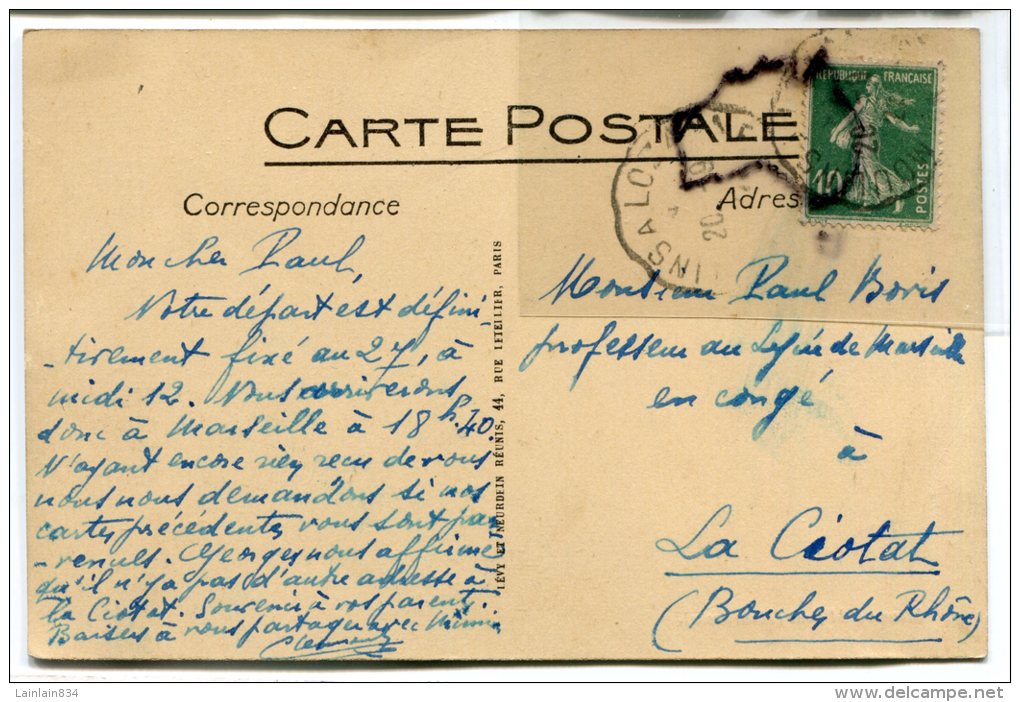 CARTE POSTALE
Correspondance
Adres
RÉPUBLIQUE FRANÇAISE
10
POSTES
INS A LO
20
Mon cher Paul,
Notre départ est défini-
-tivement fixé au 27, à
midi 12. Nous arriverons
donc à Marseille à 18h.40.
N'ayant encore rien reçu de vous
nous nous demandons si nos
cartes précédentes vous sont par
-venues. Georges nous affirme
qu'il n'y a pas d'autre adresse à
la Ciotat. Souvenir à vos parents.
Baisers à vous partager avec Mimi
LÉVY ET NEURDEIN RÉUNIS, 44, RUE LETELLIER, PARIS
Monsieur Paul Boris
professeur au Lycée de Marseille
en congé
à
La Ciotat
(Bouches du Rhône)
Lainlain834
delcampe.net